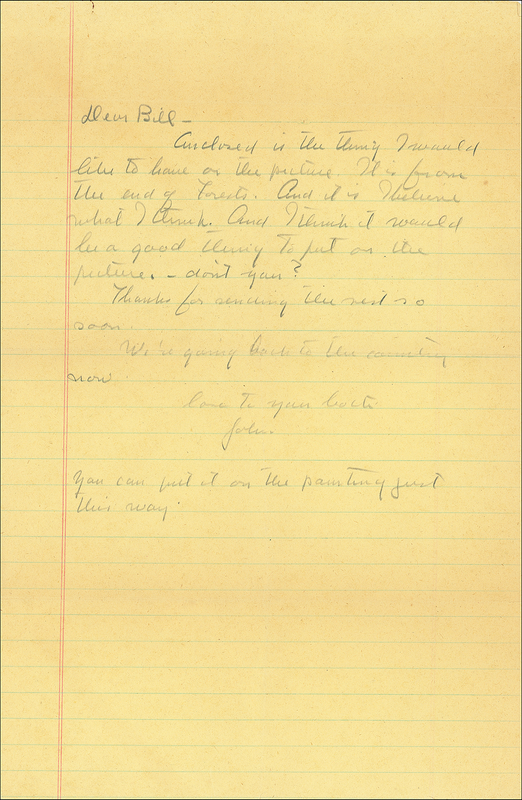 Dear Bill -
Enclosed is the thing I would
like to have on the picture. It is from
the end of Forests. And it is I believe
what I think. And I think it would
be a good thing to put on the
picture. - don't you?
Thanks for sending the rest so
soon.
We're going back to the country
now
love to you both
John
You can put it on the painting just
this way